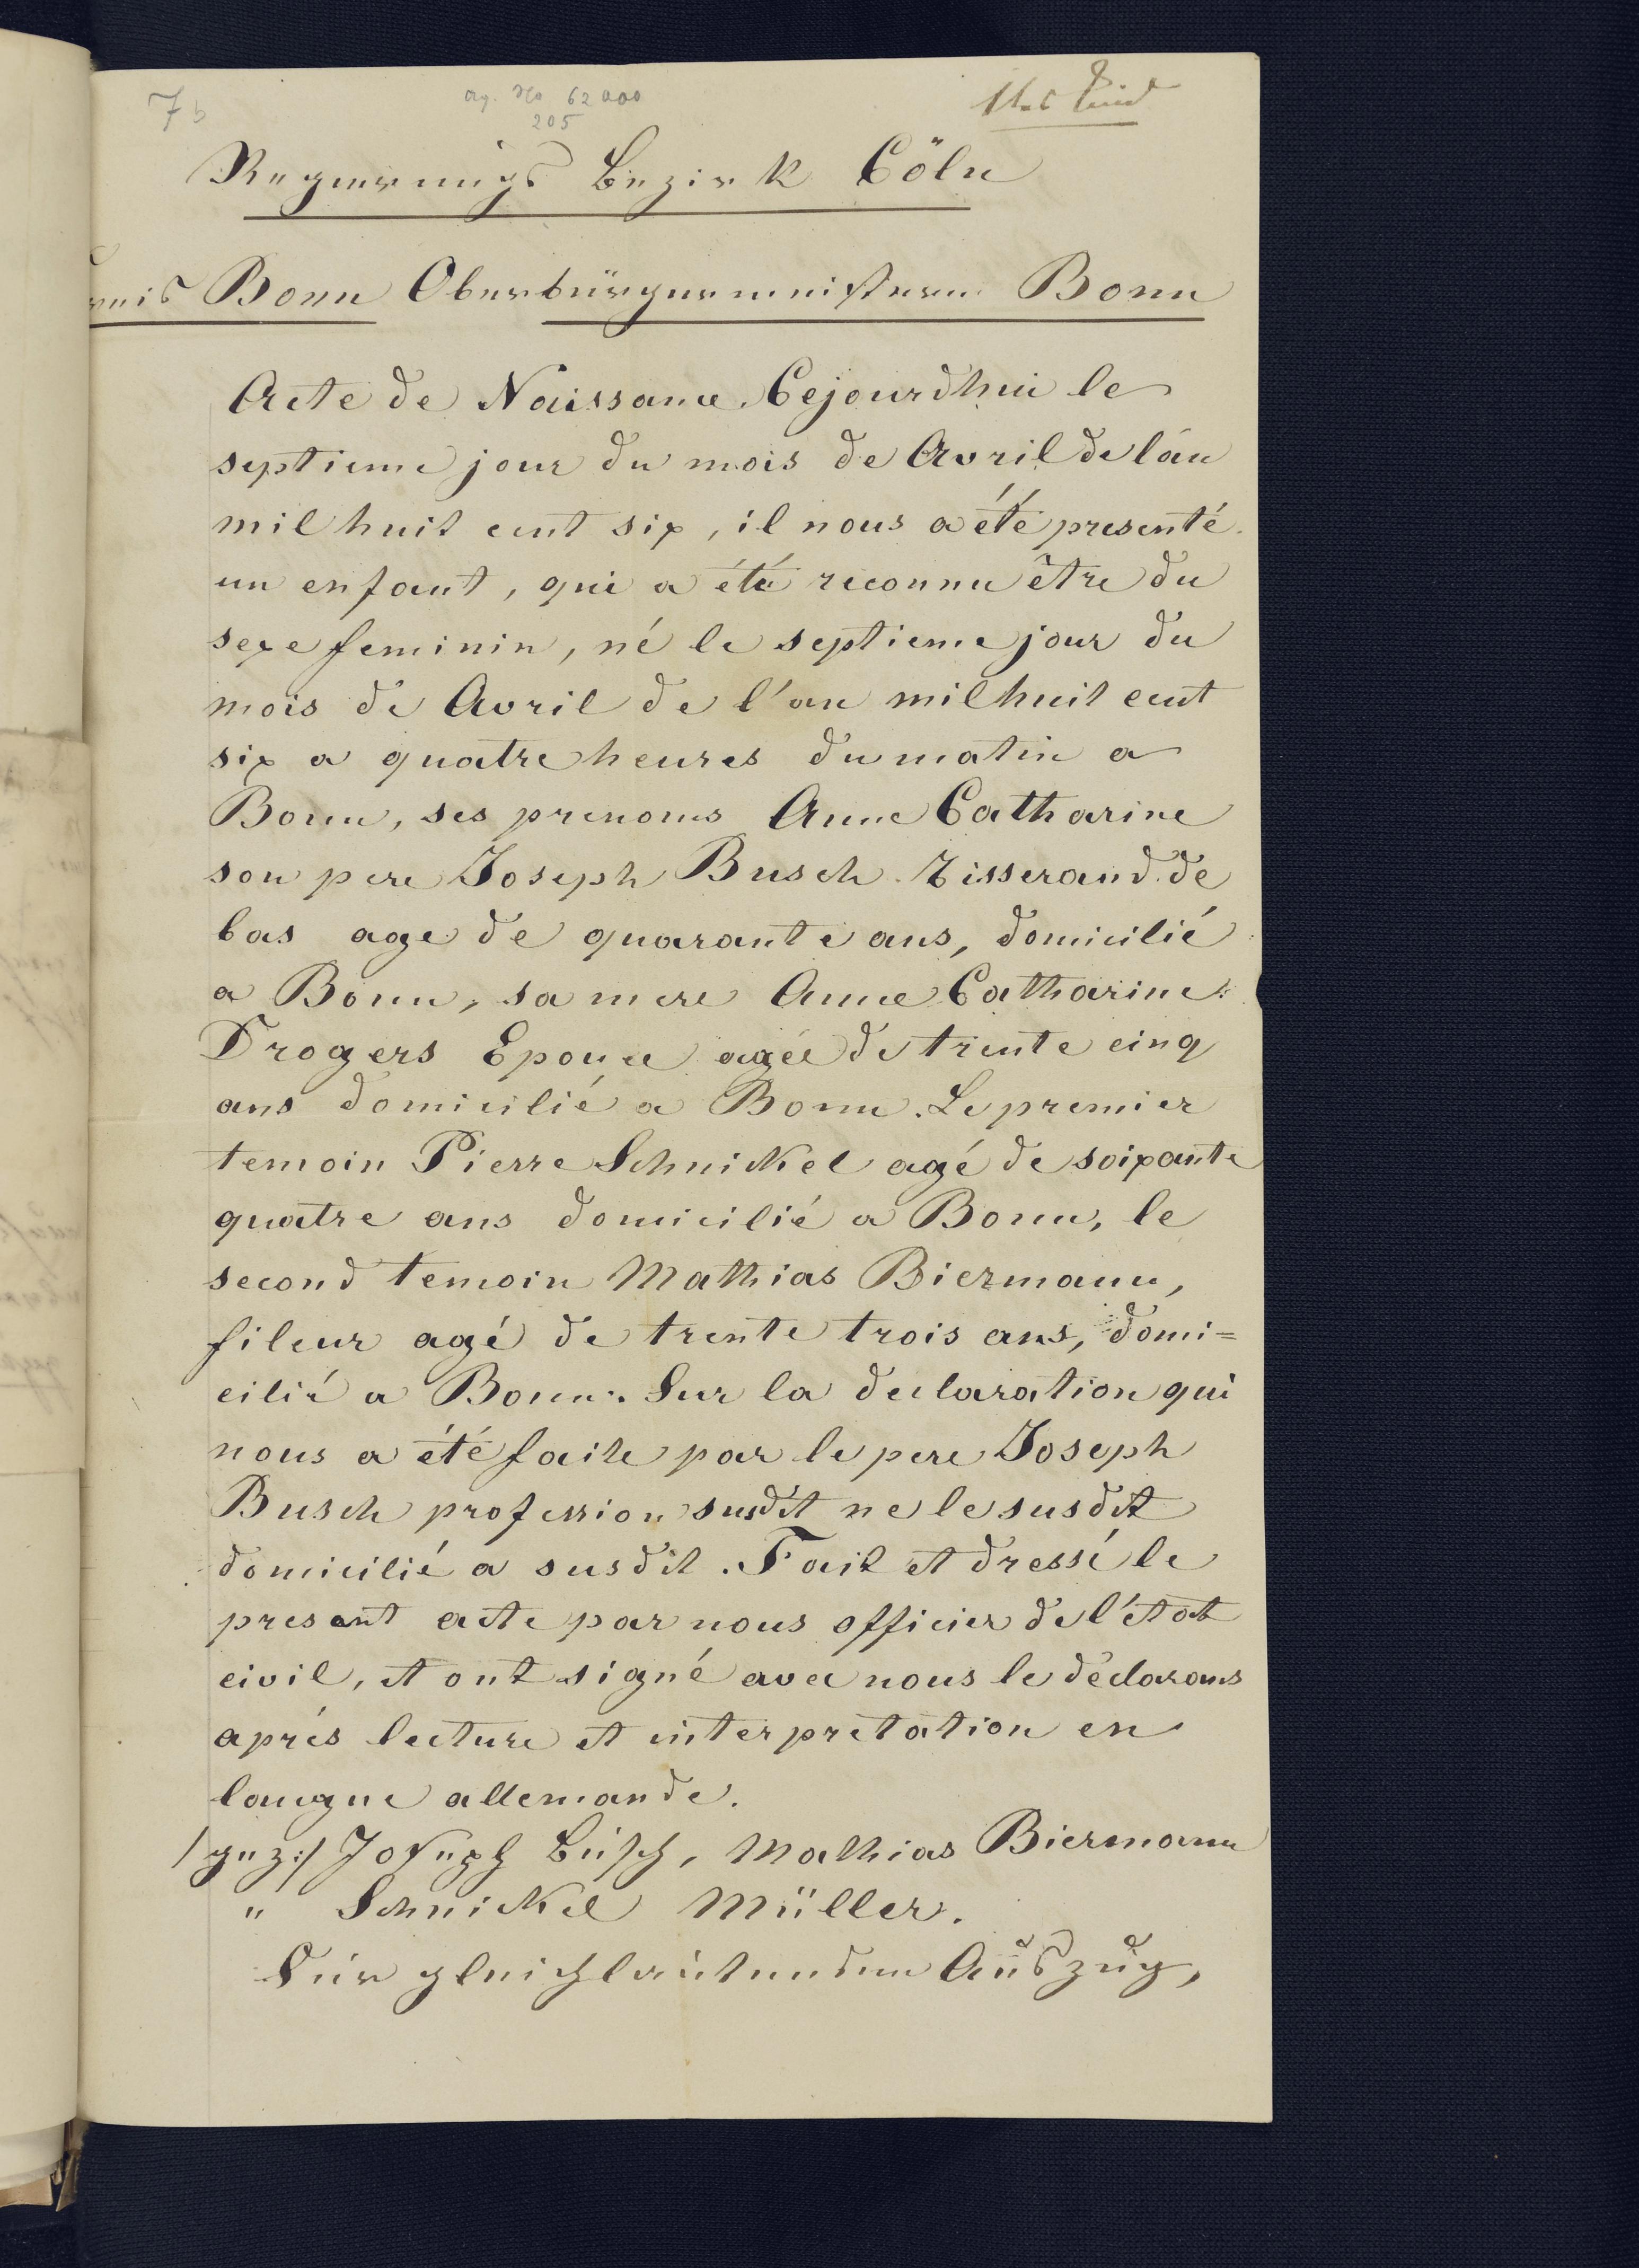 7b
62000
205
Regierungs Bezirk Cöln
Bonn Oberbürgermeisterei Bonn
Acte de Naissance. Cejourdhui le
septieme jour du mois de Avril de l'an
mil huit cent six, il nous a été presenté
un enfant, qui a été reconnu être du
sexe feminin, né le septieme jour du
mois de Avril de l'an mil huit cent
six a quatre heures du matin a
Bonn, ses prenoms Anne Catharine
son pere Joseph Busch Tisserand de
bas age de quarante ans, domicilié
a Bonn, sa mere Anne Catharine
Drogers Epouse agée de trente cinq
ans domicilié a Bonn. Le premier
temoin Pierre Schnickel agé de soixante
quatre ans domicilié a Bonn, le
second temoin Mathias Biermann,
fileur agé de trente trois ans, domi=
cilié a Bonn. Sur la declaration qui
nous a été faite par le pere Joseph
Busch profession susdit ne le susdit
domicilié a susdit. Fait et dressé le
present acte par nous officier de l'état
civil, et ont signé avec nous le déclarans
aprés lecture et interpretation en
langue allemande.
/gez:/ Joseph Busch, Mathias Biermann
" Schnickel Müller.
Für gleichlautenden Auszug,